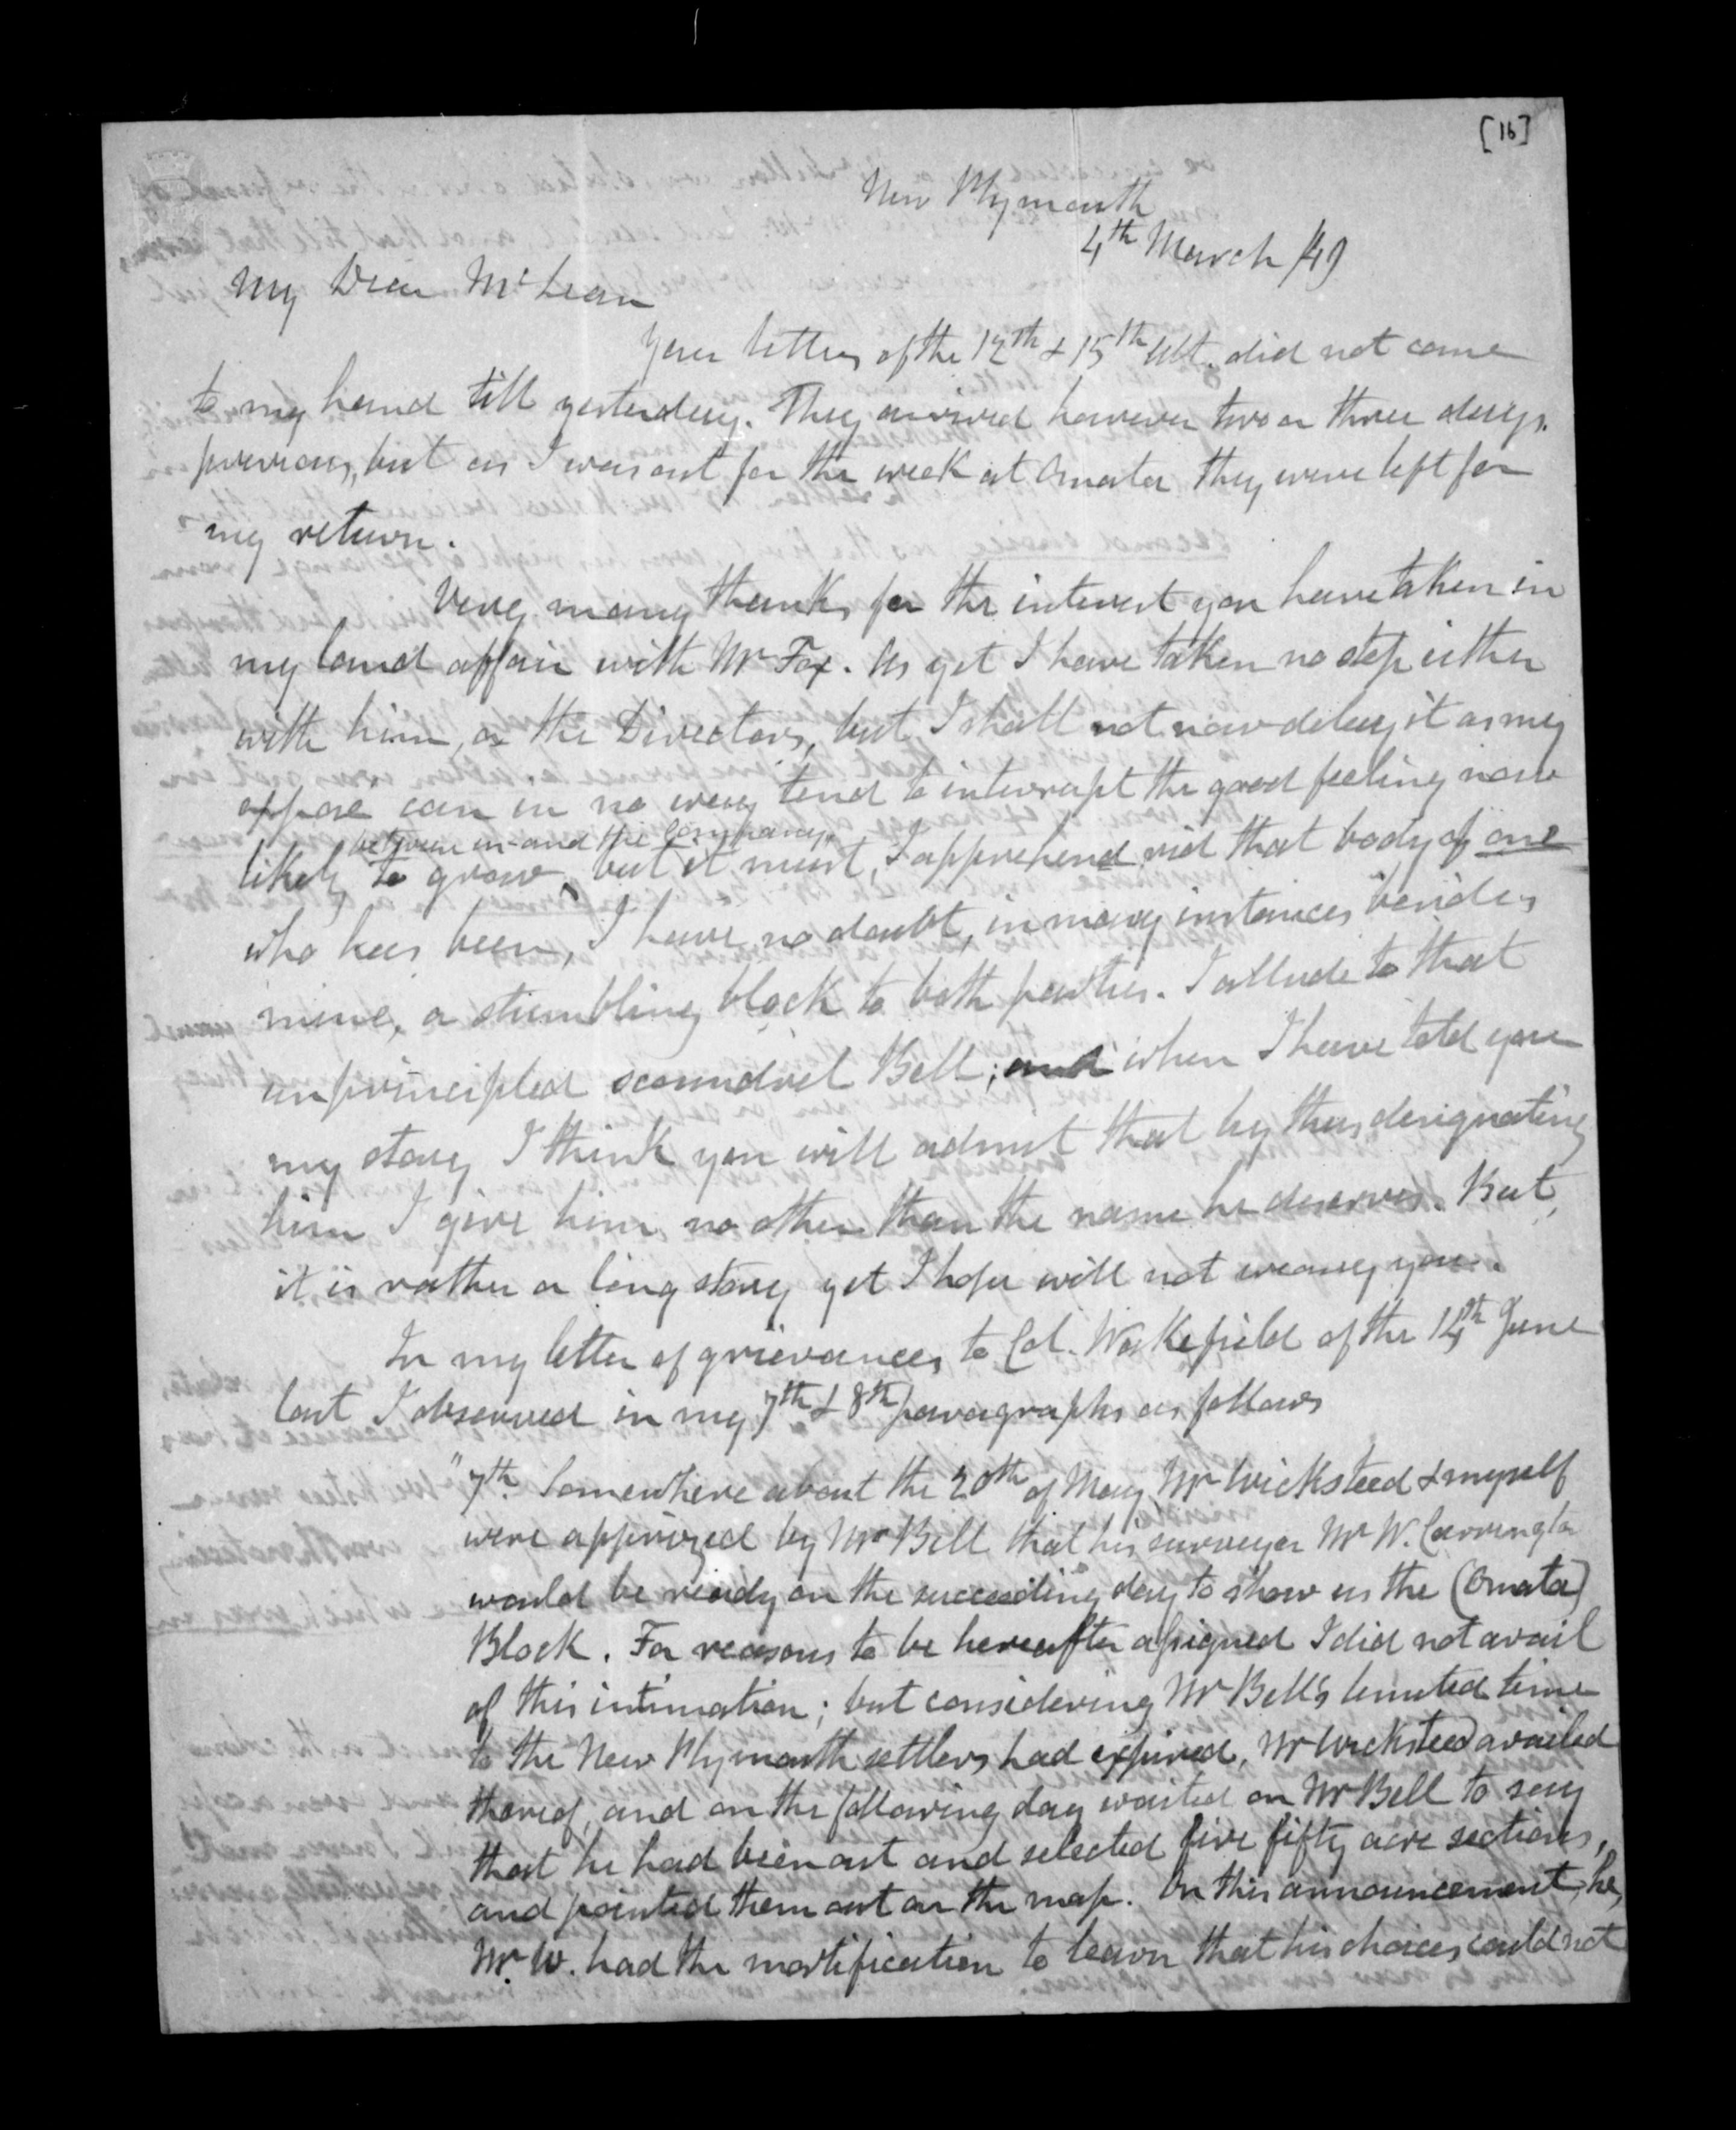 [16]
New Plymouth
4th March /49
My Dear McLean
Your letters of the 12th & 15th Ult. did not come
to my hand till yesterday. They arrived however two or three days.
previous, but as I was out for the week at Omata they were left for
my return.
Very many thanks for the interest you have taken in
my land affair with Mr Fox. As yet I have taken no step either
with him, or the Directors, but I shall not now delay it as my
exposé can in no way tend to interrupt the good feeling now
likely to grow between us and the Company, but it must, I apprehend rid that body of one
who has been, I have no doubt, in many instances besides
mine, a stumbling block to both parties. I allude to that
unprincipled scoundrel Bell; and when I have told you
my story I think you will admit that by thus designating
him I give him no other than the name he deserves. But,
it is rather a long story yet I hope will not weary you.
In my letter of grievances to Col. Wakefield of the 14th June
last I observed in my 7th & 8th paragraphs as follows
"7th. Somewhere about the 20th of May Mr Wicksteed & myself
were apprized by Mr Bell that his surveyor Mr W. Carrington
would be ready on the succeeding day to show us the (Omata)
Block. For reasons to be hereafter assigned I did not avail
of this intimation; but considering Mr Bell's limited time
to the New Plymouth settlers had expired, Mr Wicksteed availed
thereof, and on the following day waited on Mr Bell to say
that he had been out and selected five fifty acre sections,
and pointed them out on the map. On this announcement, he,
Mr W. had the mortification to learn that his choices could not